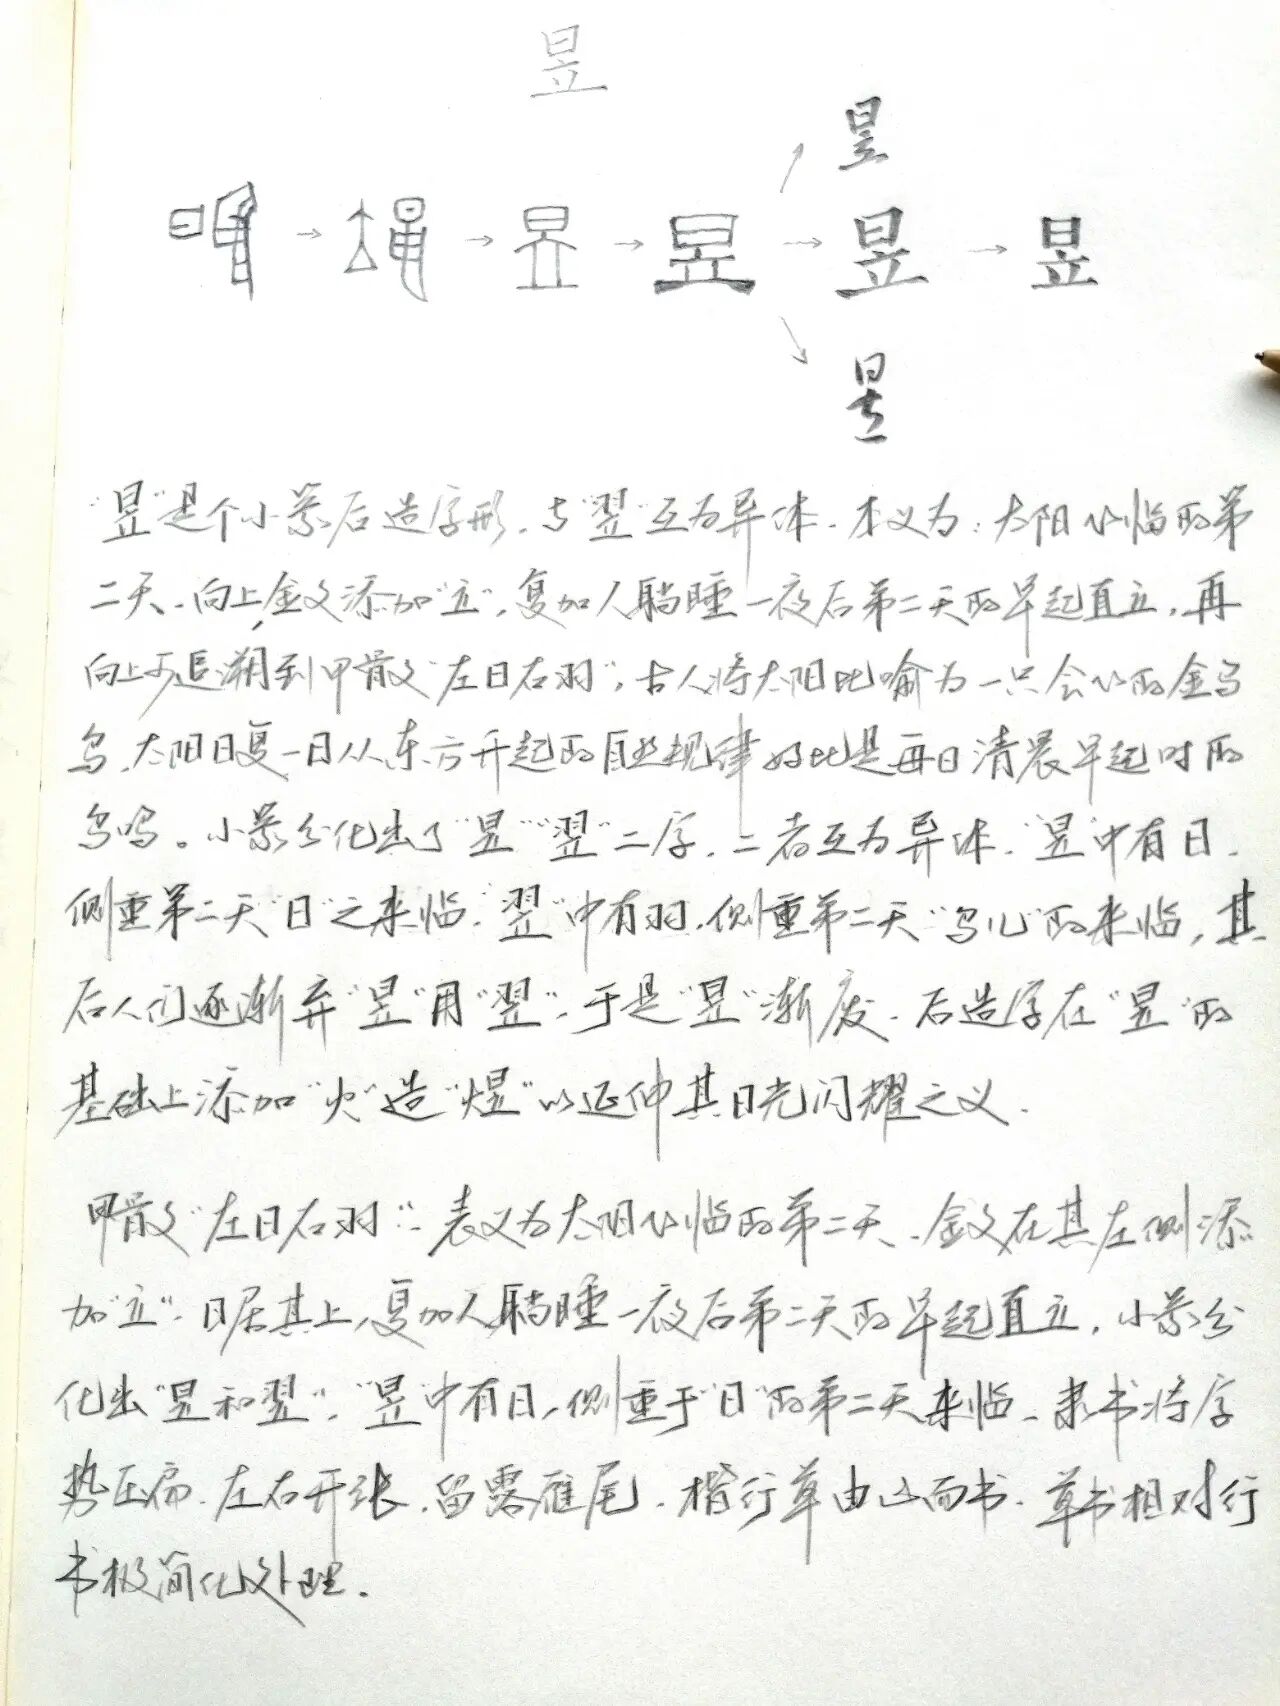 昱
昱
→ → 昱 → 昱 → 昱 → 昱
昱
"昱"是个小篆后造字形，与"翌"互为异体．本义为：太阳飞临的第
二天．向上，金文添加"立"，复加人躺睡一夜后第二天的早起直立，再
向上可追溯到甲骨文"左日右羽"，古人将太阳比喻为一只会飞的金乌
鸟．太阳日复一日从东方升起的自然规律好比是每日清晨早起时的
鸟鸣。小篆分化出了"昱""翌"二字．二者互为异体．"昱"中有日．
侧重第二天"日"之来临．"翌"中有羽．侧重第二天"鸟儿"的来临，其
后人们逐渐弃"昱"用"翌"．于是"昱"渐废．后造字在"昱"的
基础上添加"火"造"煜"以延伸其日光闪耀之义．
甲骨文"左日右羽"．表义为太阳飞临的第二天．金文在其左侧添
加"立"．日居其上，复加人躺睡一夜后第二天的早起直立．小篆分
化出"昱和翌"．"昱"中有日，侧重于"日"的第二天来临．隶书将字
势压扁．左右开张．留露雁尾．楷行草由此而书．草书相对行
书极简化处理．